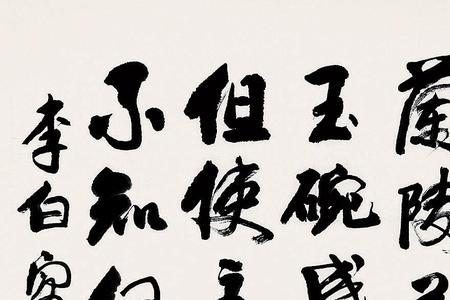 蘭陵
玉碗盛
但使主
不知何
李白客